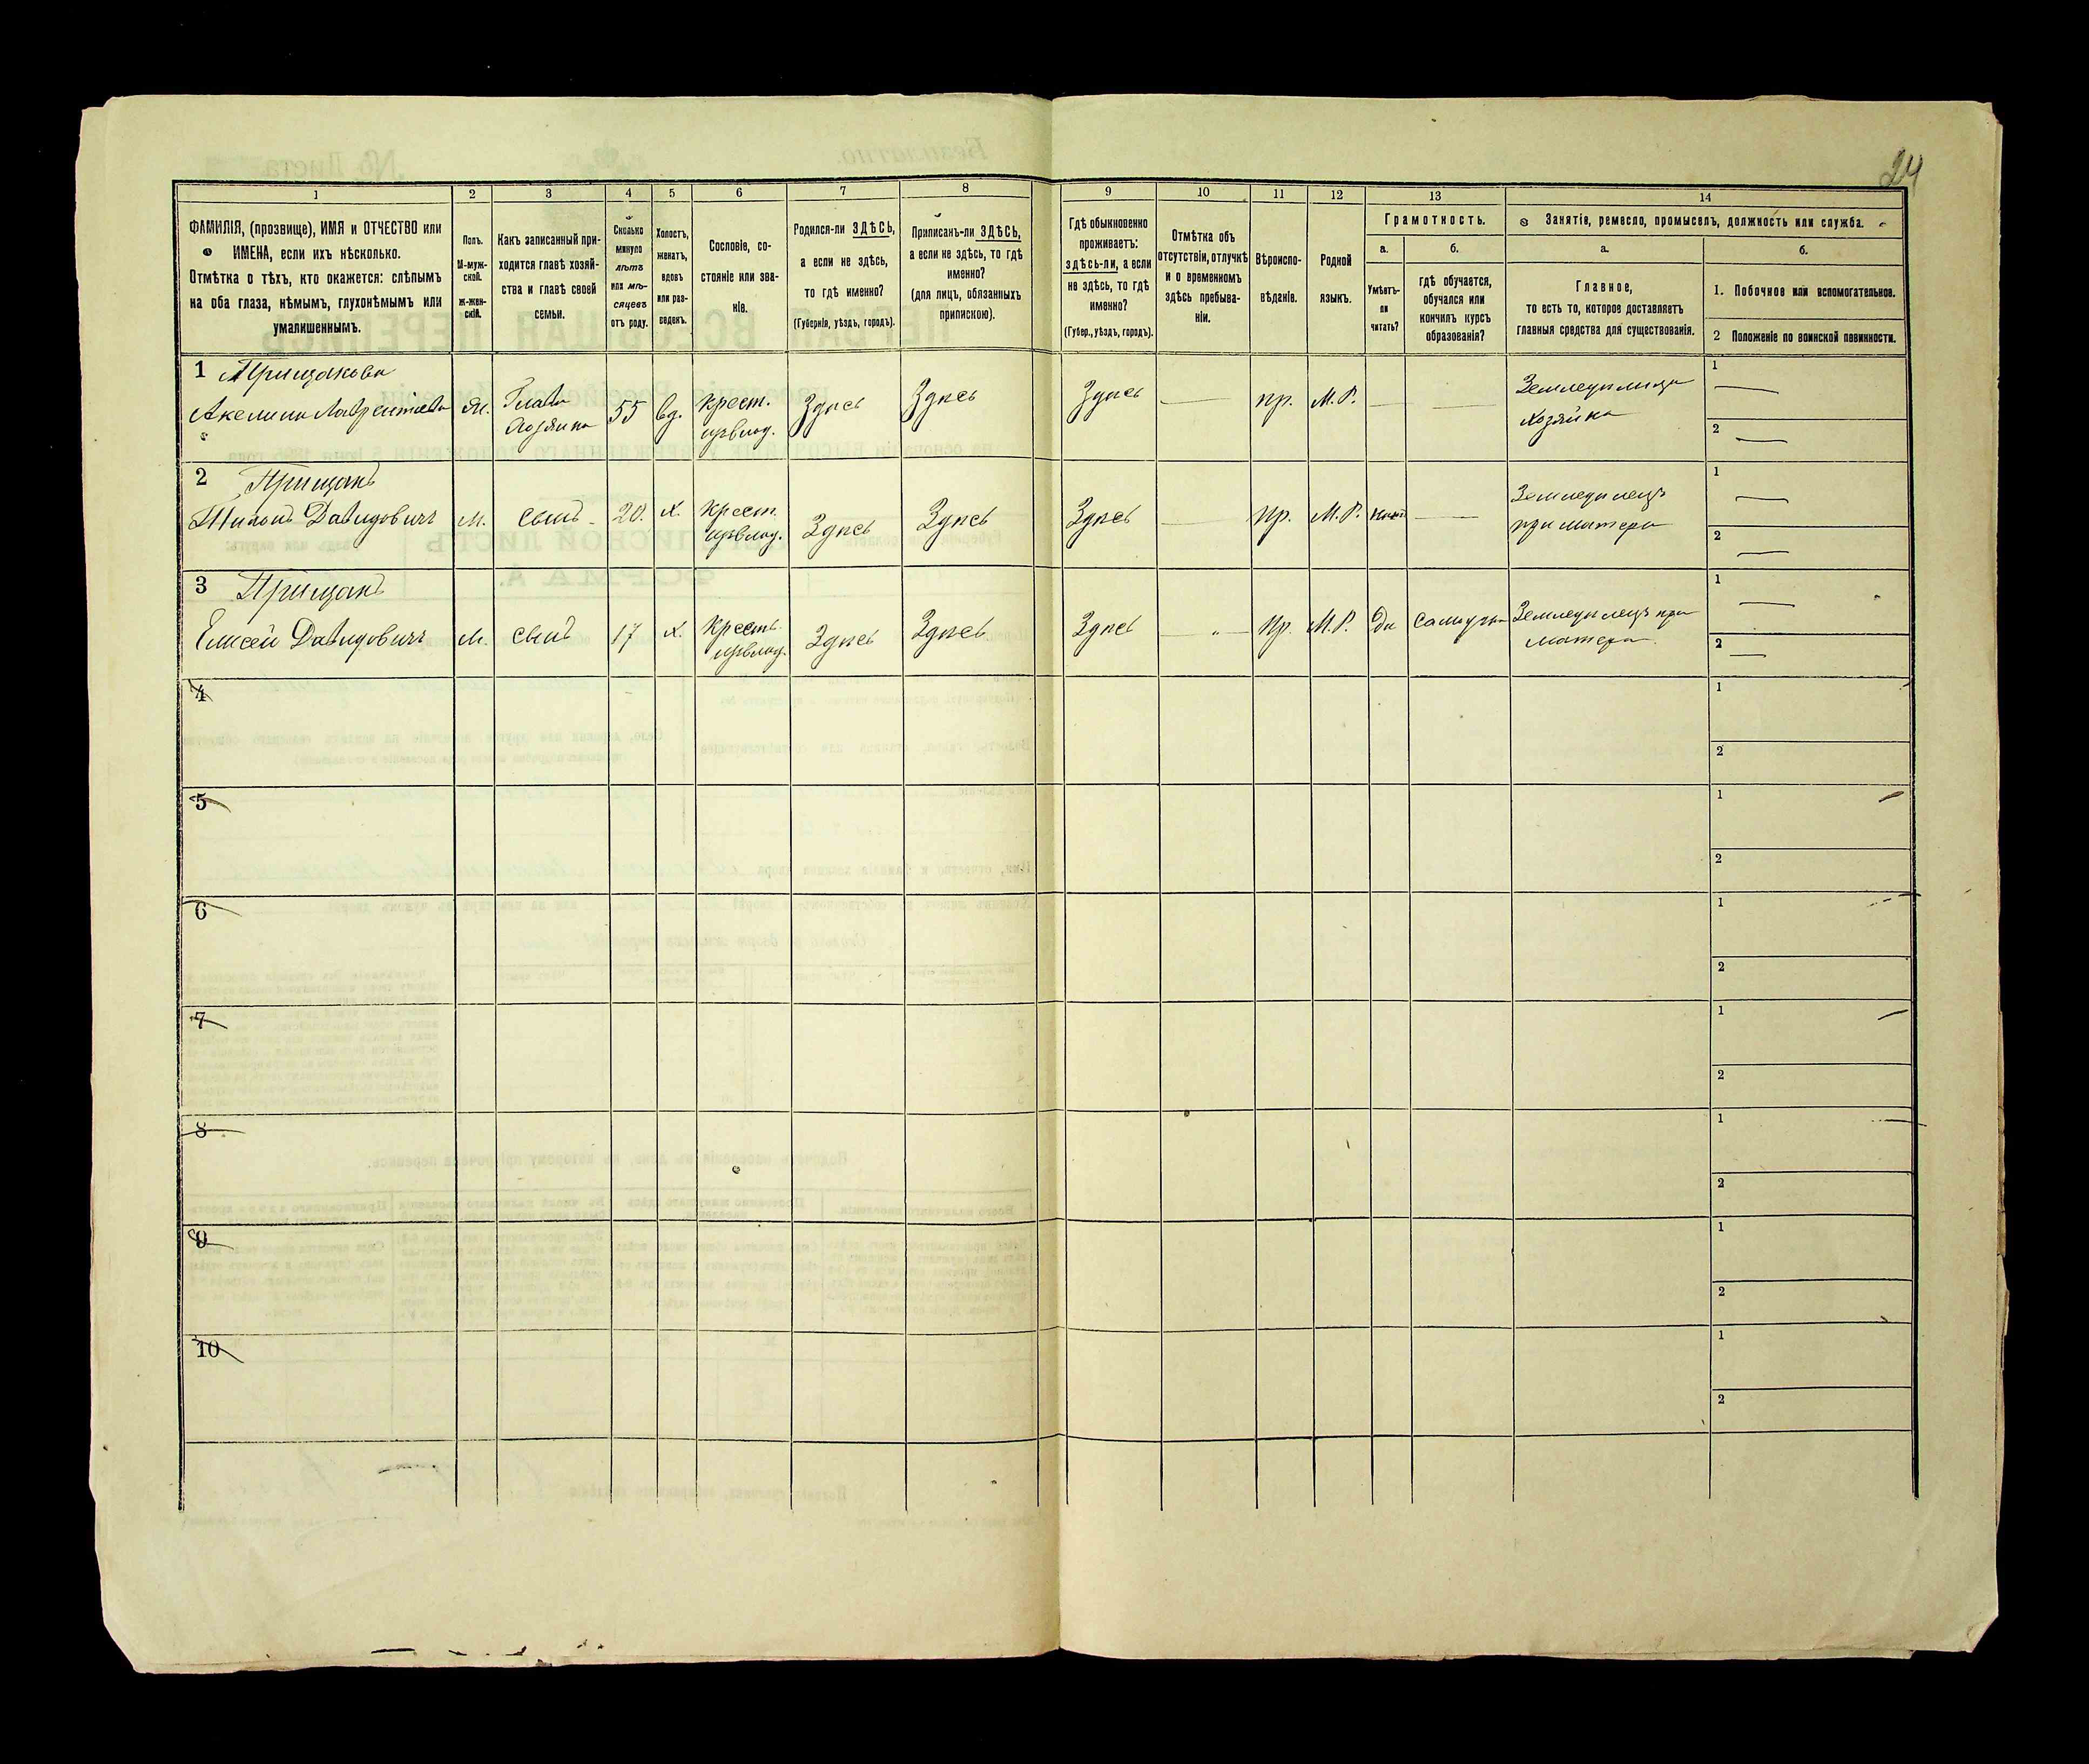 24
1 2 3 4 5 6 7 8 9 10 11 12 13 14
ФАМИЛІЯ, (прозвище), ИМЯ и ОТЧЕСТВО или
ИМЕНА, если ихъ нѣсколько.
Отмѣтка о тѣхъ, кто окажется: слѣпымъ
на оба глаза, нѣмымъ, глухонѣмымъ или
умалишеннымъ.
Полъ.
М-муж-
ской.
ж-жен-
скій.
Какъ записанный при-
ходится главѣ хозяй-
ства и главѣ своей
семьи.
Сколько
минуло
лѣтъ
или мѣ-
сяцевъ
отъ роду.
Холостъ,
женатъ,
вдовъ
или раз-
веденъ.
Сословіе, со-
стояніе или зва-
ніе.
Родился-ли ЗДѢСЬ,
а если не здѣсь,
то гдѣ именно?
(Губернія, уѣздъ, городъ).
Приписанъ-ли ЗДѢСЬ,
а если не здѣсь, то гдѣ
именно?
(для лицъ, обязанныхъ
припискою).
Гдѣ обыкновенно
проживаетъ:
здѣсь-ли, а если
не здѣсь, то гдѣ
именно?
(Губер., уѣздъ, городъ).
Отмѣтка объ
отсутствіи, отлучкѣ
и о временномъ
здѣсь пребыва-
ніи.
Вѣроиспо-
вѣданіе.
Родной
языкъ.
Грамотность.
а.
Умѣетъ-
ли
читать?
б.
гдѣ обучается,
обучался или
кончилъ курсъ
образованія?
Занятіе, ремесло, промыселъ, должность или служба.
а.
Главное,
то есть то, которое доставляетъ
главныя средства для существованія.
б.
1. Побочное или вспомогательное.
2 Положеніе по воинской повинности.
1 Прищакова
Акелина Лаврентіева Ж. Глава Хозяина 55 вд. крест. Здѣсь Здѣсь Здѣсь — пр. М.Р. — — Земледѣлица Хозяйка 1 — 2 —
2 Прищакъ
Давидовичъ М. сынъ 20. х. крест. Здѣсь Здѣсь Здѣсь — пр. М.Р. нѣтъ — Земледѣлецъ при матери 1 — 2 —
3 Прищакъ
Елисей Давидовичъ М. сынъ 17 х. крест. Здѣсь Здѣсь Здѣсь — пр. М.Р. Да Земледѣлецъ при матери 1 — 2 —
4 1 2
5 1 2
6 1 2
7 1 2
8 1 2
9 1 2
10 1 2